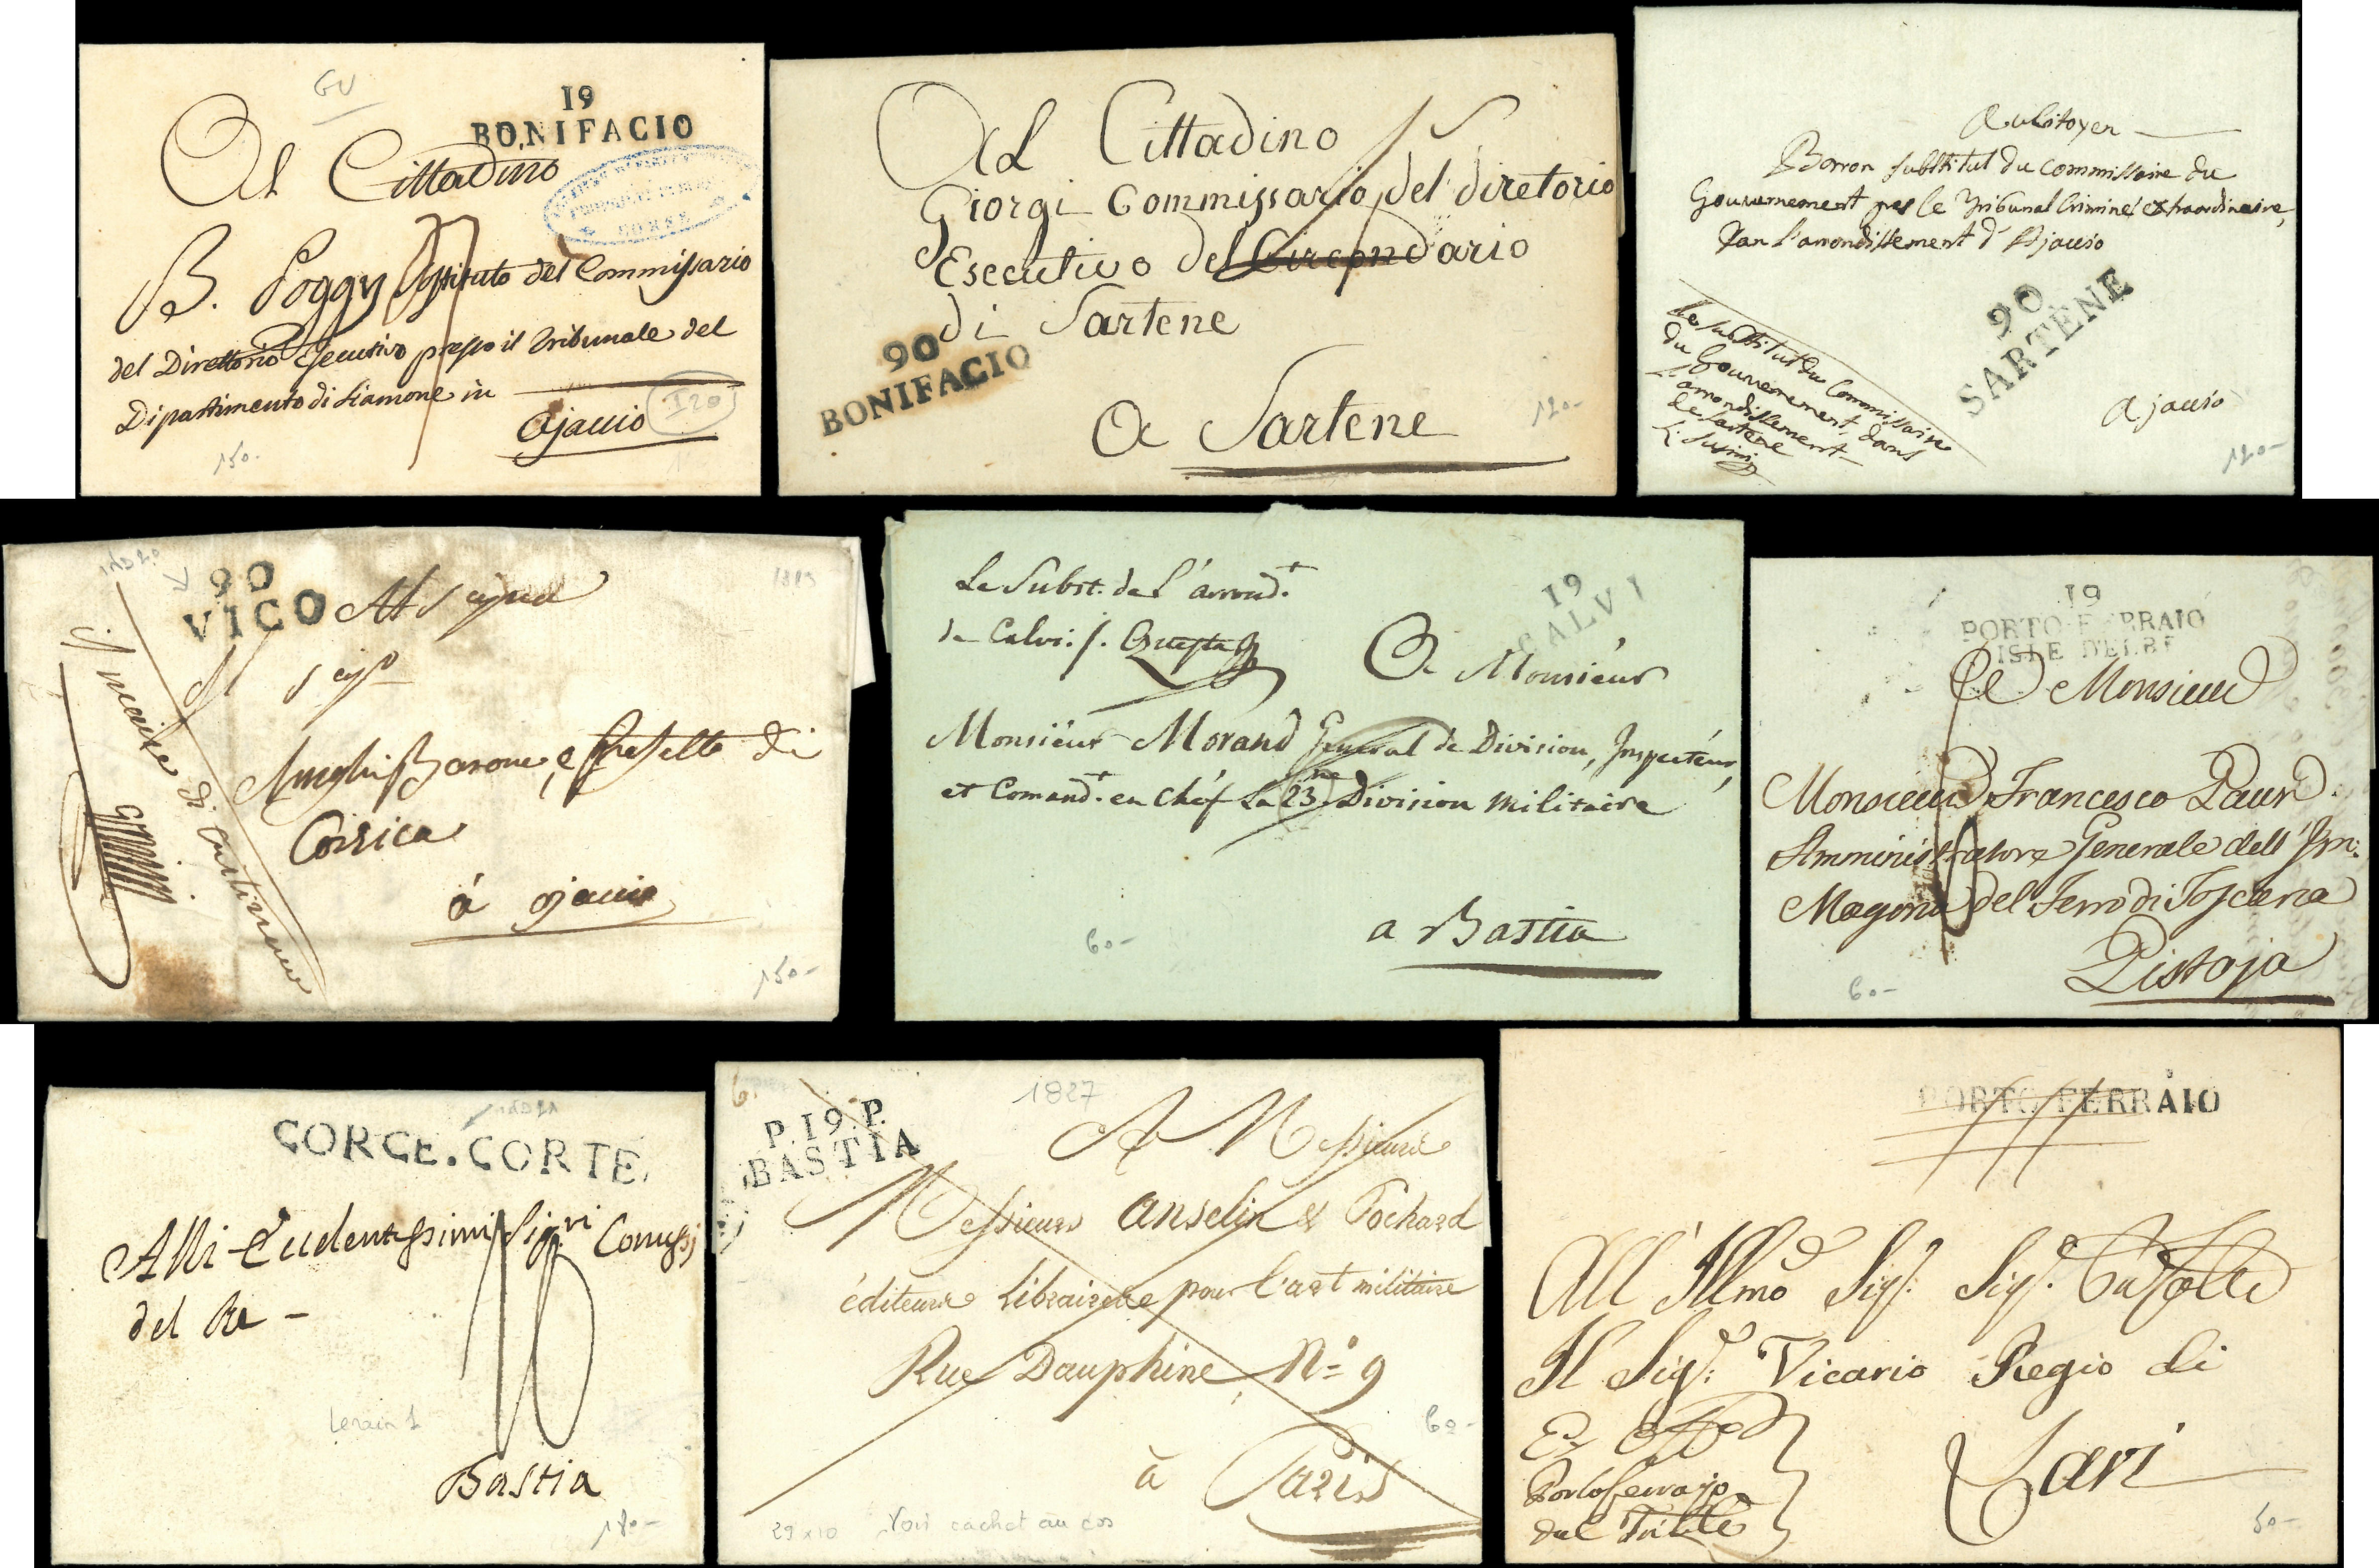 GV
19
BONIFACIO
Al Cittadino
CORSE
B. Poggy Sostituto del Commissario
del Direttorio Esecutivo presso il Tribunale del
Dipartimento di Liamone in
Ajaccio
120
150-
Al Cittadino
Giorgi Commissario del diretorio
Esecutivo del Circondario
di Sartene
90
BONIFACIO
A Sartene
120-
Au Citoyen
Borron substitut du commissaire du
Gouvernement pres le Tribunal Criminel extraordinaire,
dan l'arrondissement d'Ajaccio
90
SARTÈNE
Le substitut du Commissaire
du Gouvernement dans
l'arrondissement
de Sartene
Ajaccio
120-
90
VICO
1813
Al
Barone, e Prefetto di
Corsica
à Ajaccio
il maire di
150-
Le Subst. de l'arrond.t
de Calvi. f.
19
CALVI
A Monsieur
Monsieur Morand General de Division, Inspecteur,
et Comand.t en chef La 23.me Division militaire
a Bastia
60-
19
PORTO-FERRAIO
ISLE D'ELBE
A Monsieur
Monsieur Francesco
Amministratore Generale dell' Im.
Magona del Ferro di Toscana
Pistoja
60-
CORCE. CORTE.
Alli
del Re -
10
Lenain 1
Bastia
180-
1827
P.19.P.
BASTIA
A Messieurs
Messieurs Anselin & Pochard
éditeurs libraires pour l'art militaire
Rue Dauphine, N.º 9
à Paris
60-
29 x 10 Voir cachet au dos
PORTO FERRAIO
All' Illmo Sig.
Il Sig.: Vicario Regio di
Portoferrajo
dal
Lari
50-